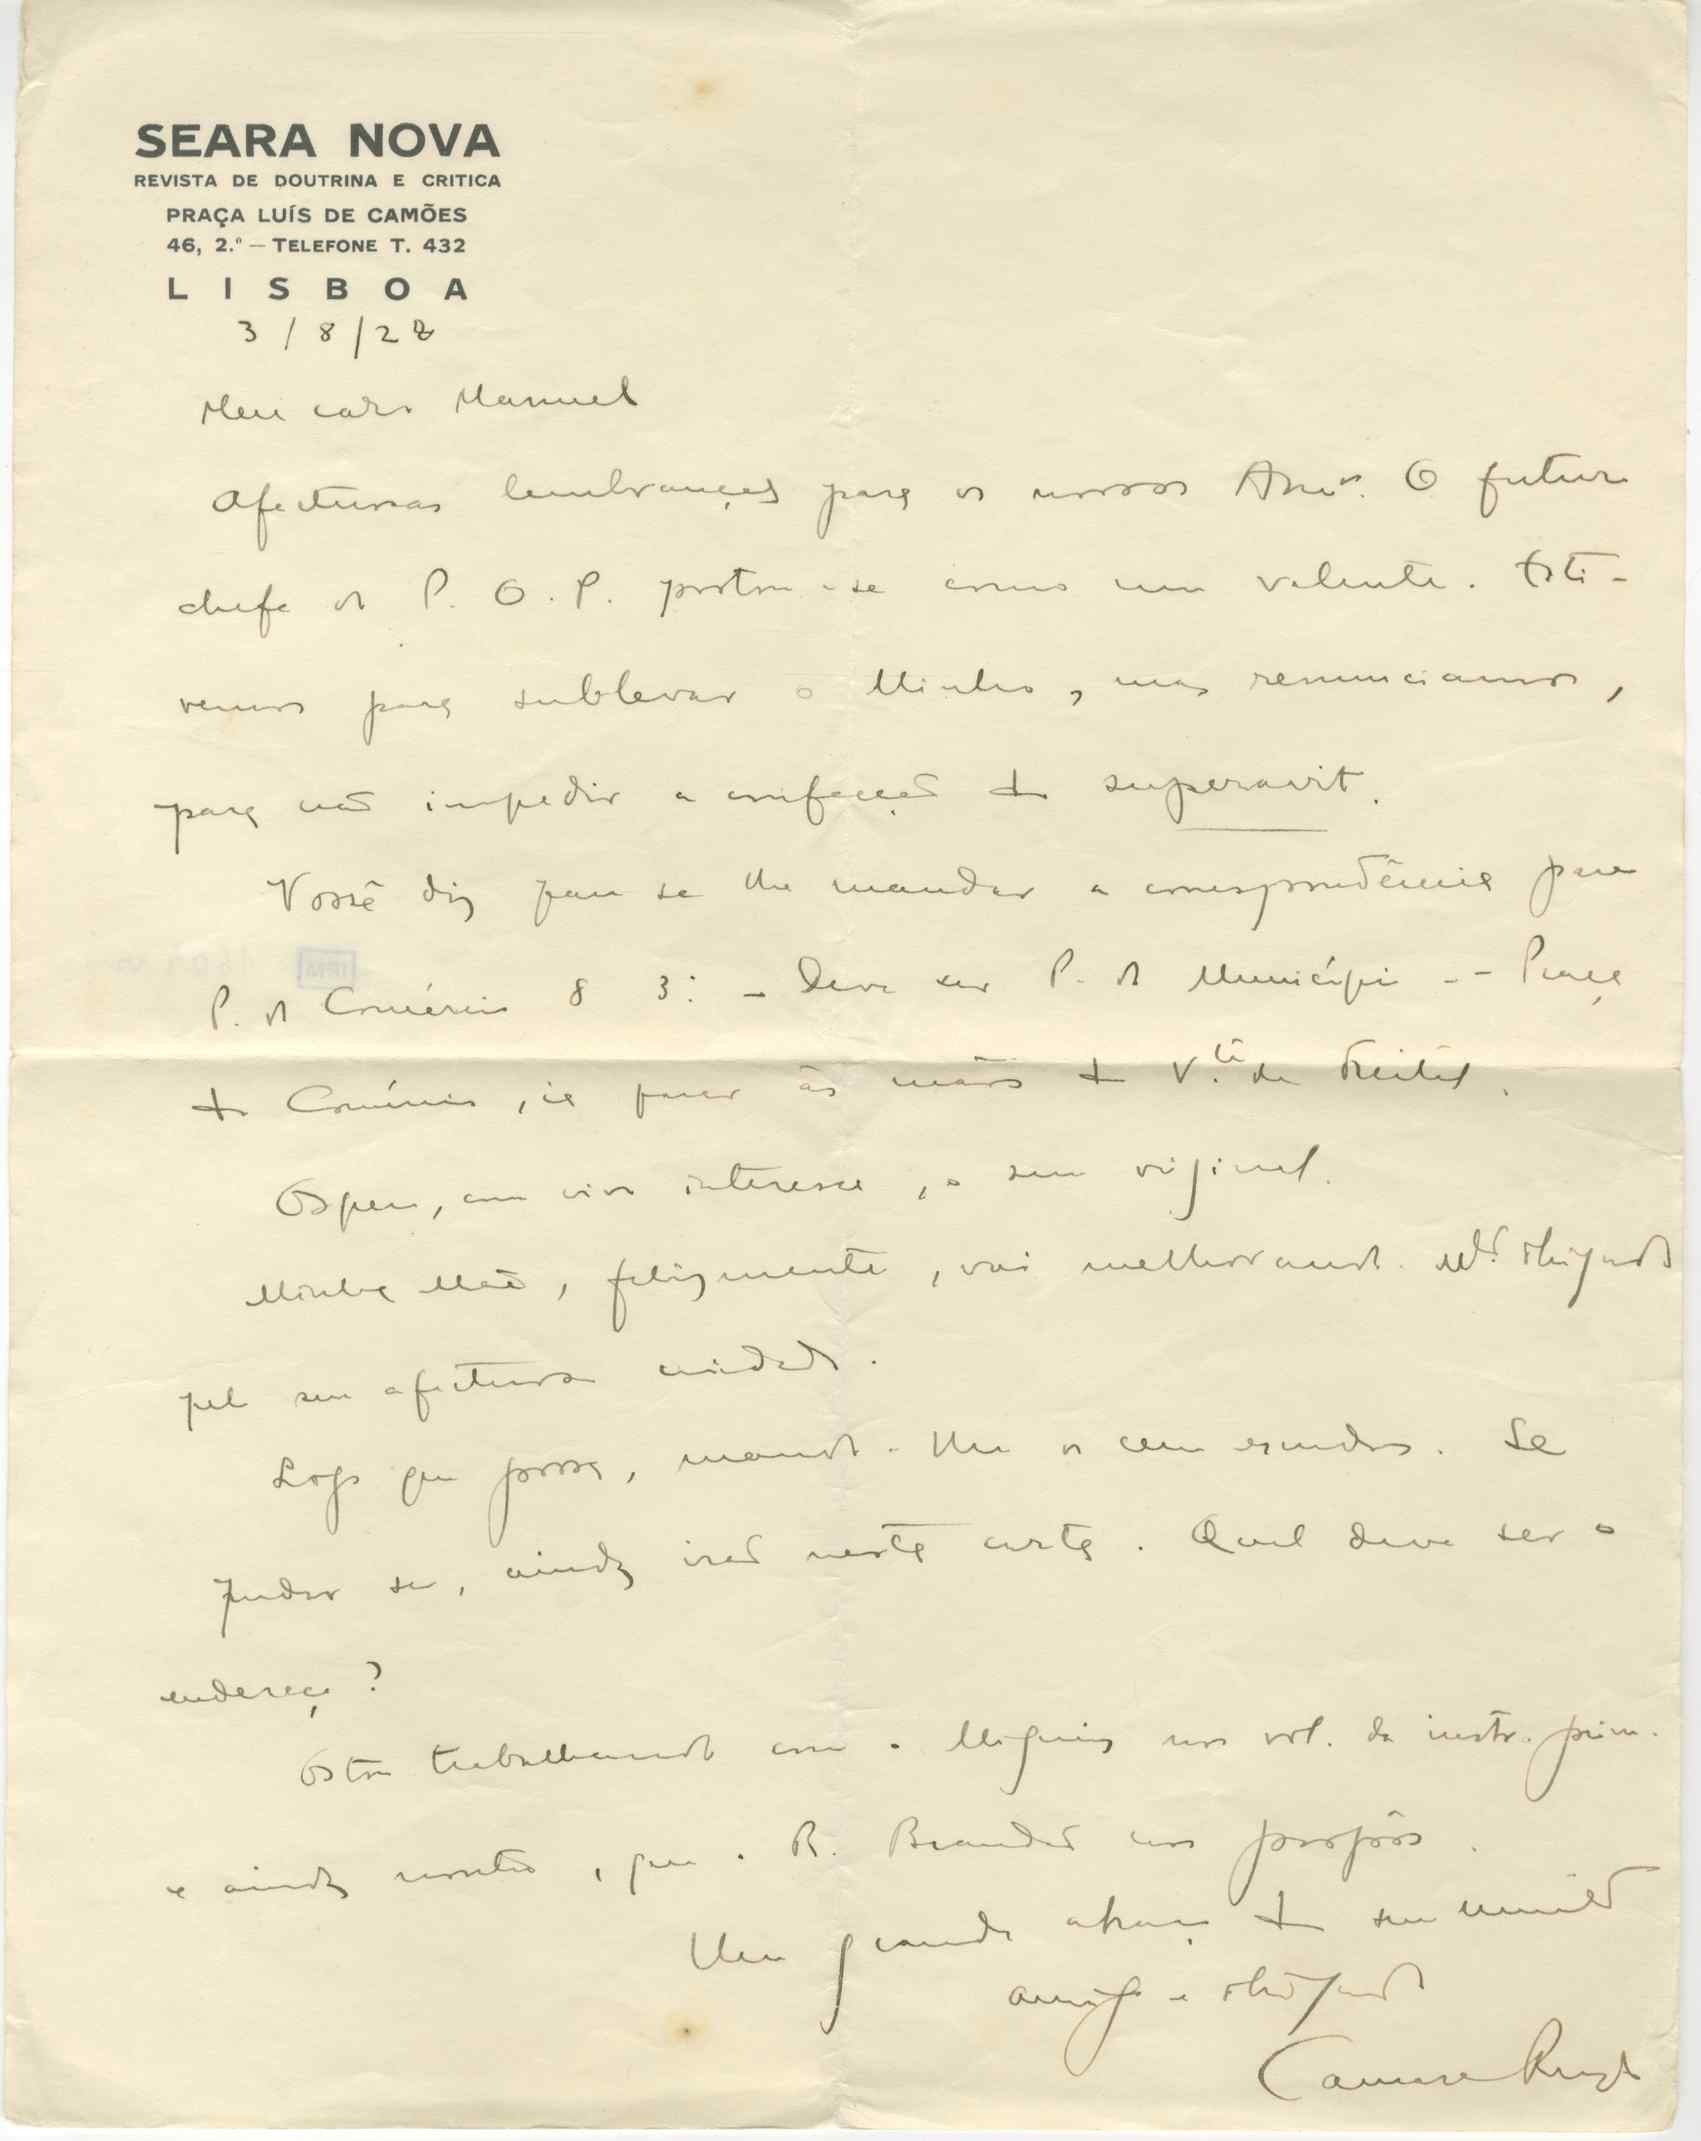 SEARA NOVA
REVISTA DE DOUTRINA E CRITICA
PRAÇA LUÍS DE CAMÕES
46, 2.º — TELEFONE T. 432
LISBOA
3/8/28
Meu caro Manuel
Afectuosas lembranças para os nossos Am.os. O futuro
chefe do P. O. P. portou-se como um valente. Esti-
vemos para sublevar o Minho, mas renunciamos,
para não impedir a confecção do superavit.
Você diz para se lhe mandar a correspondência para
P. do Comércio 8 3: - Deve ser P. do Município -- Praça
do Comércio, ia parar às mãos do V.te de
Espero, com vivo interesse, o seu original.
Minha Mãe, felizmente, vai melhorando. M.to obrigado
pelo seu afectuoso cuidado.
Logo que possa, mando-lhe os cem escudos. Se
puder ser, ainda irão nesta carta. Qual deve ser o
endereço?
Estou trabalhando com o Migueis nos vol. da instr. prim.
e ainda noutro, que o R. Brandão nos propôs.
Um grande abraço do seu muito
amigo e obrigado
Camara Reys